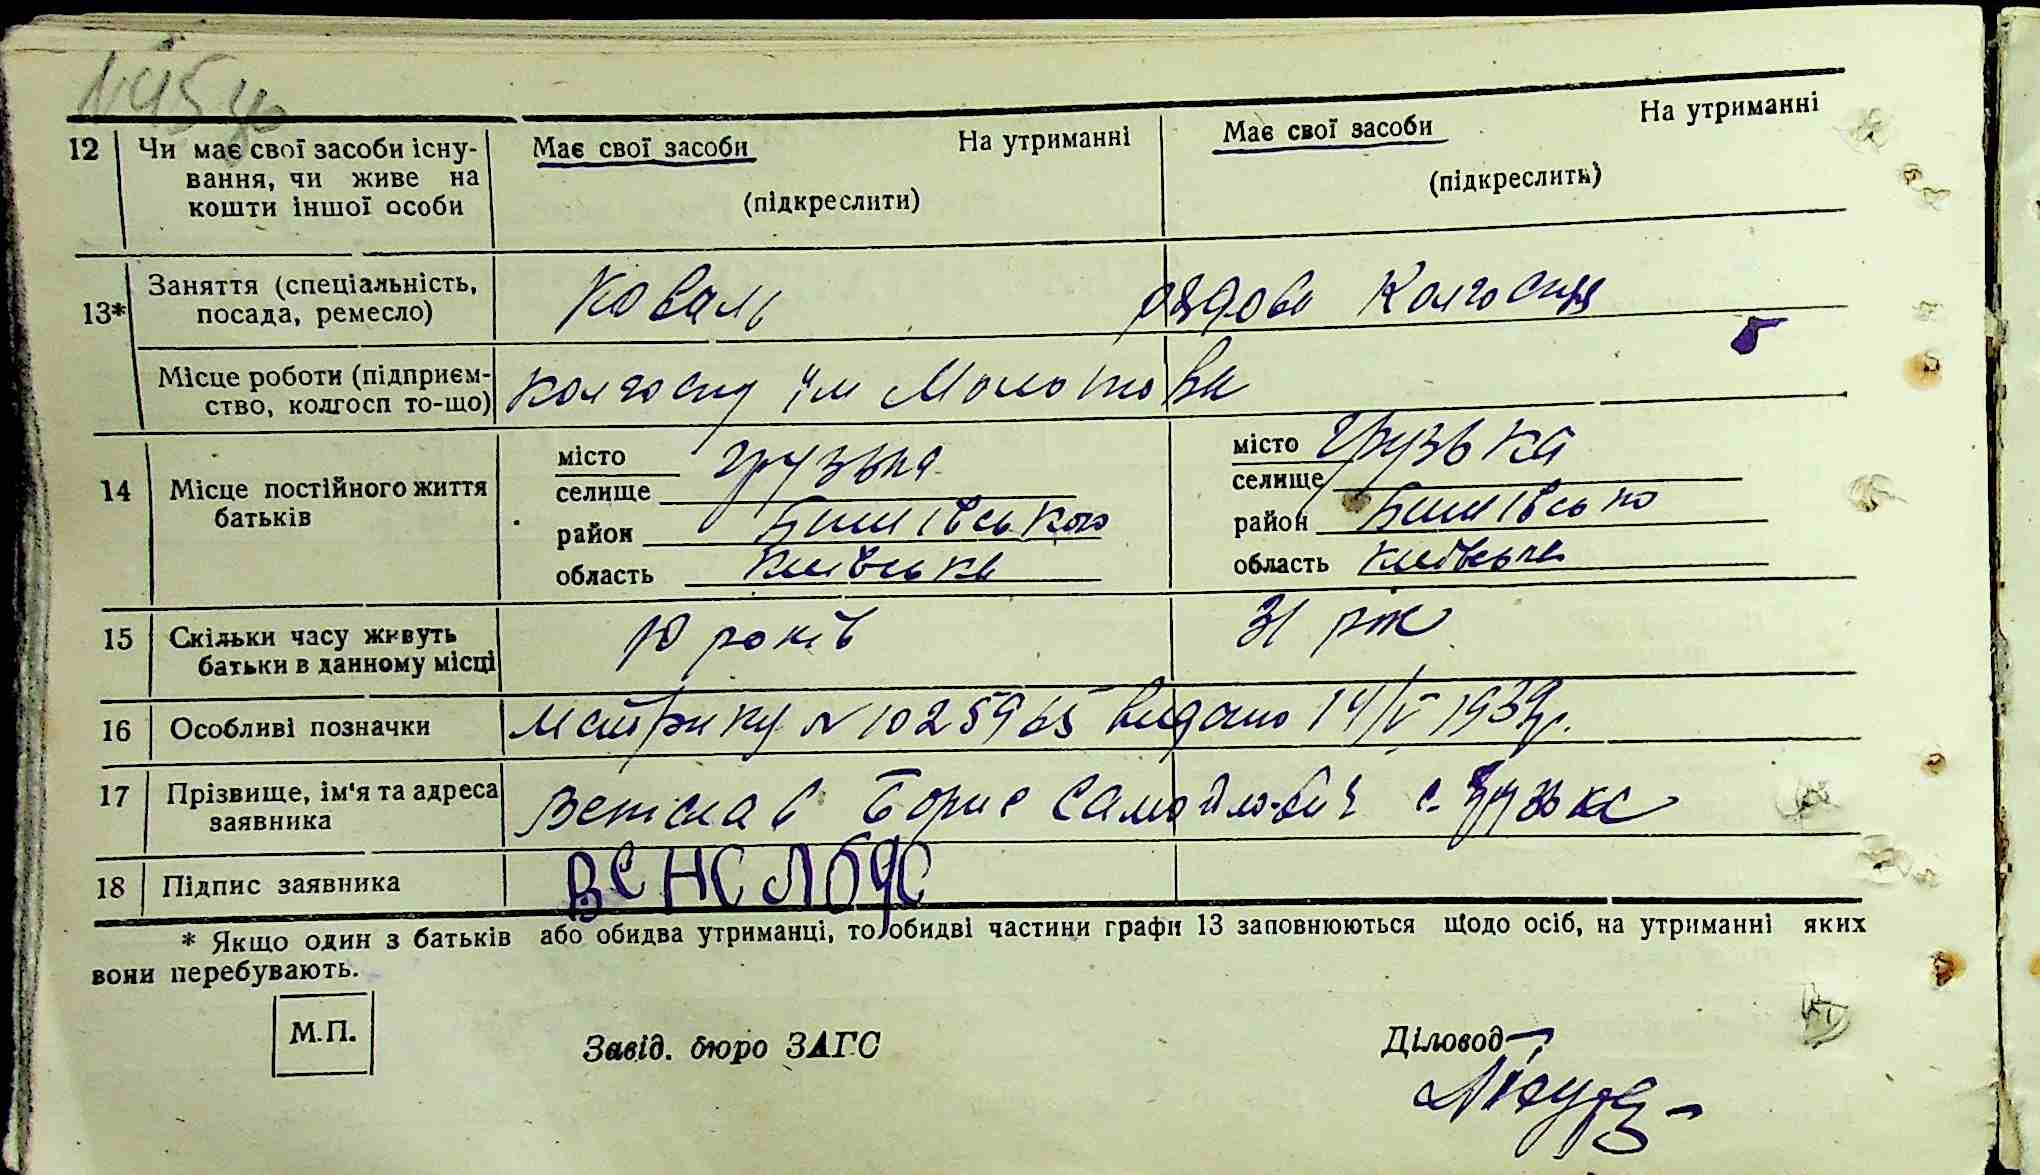 N45
12 Чи має свої засоби існу- Має свої засоби На утриманні Має свої засоби На утриманні
вання, чи живе на
кошти іншої особи (підкреслити) (підкреслить)
13* Заняття (спеціальність, Коваль рядова Колгоспу
посада, ремесло)
Місце роботи (підприєм- колгосп ім Молотова
ство, колгосп то-що)
14 Місце постійного життя місто Грузька місто Грузька
батьків селище селище
район Бишівського район Бишівсько
область Київська область Київська
15 Скільки часу живуть 10 років 31 рік
батьки в данному місці
16 Особливі позначки Метрику N 1025965 видано 14/V 1939р.
17 Прізвище, ім'я та адреса Борис Самойлович с. Грузьке
заявника
18 Підпис заявника
* Якщо один з батьків або обидва утриманці, то обидві частини графи 13 заповнюються щодо осіб, на утриманні яких
вони перебувають.
М.П. Завід. бюро ЗАГС Діловод